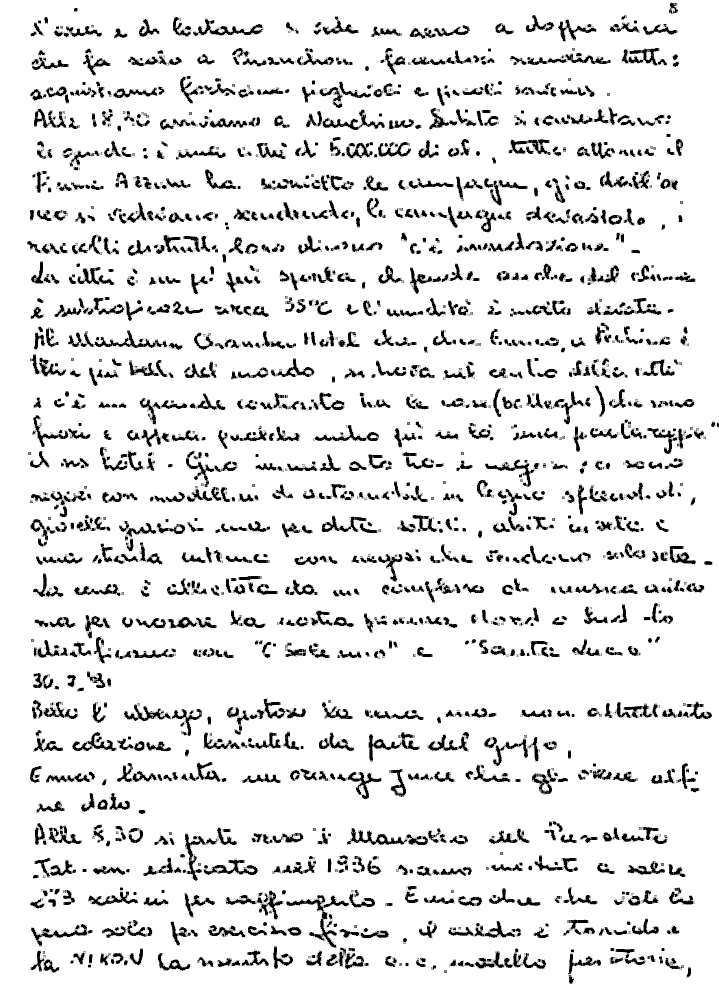 8
l'aria e di lontano si vede un aereo a doppia elica
che fa scalo a, facendoci scendere tutti:
acquistiamo forbicine pieghevoli e piccoli souvenirs.
Alle 18,30 arriviamo a Nanchino. Subito si consultano
le guide: è una città di 5.000.000 di ab., tutto attorno il
Fiume Azzurro ha le campagne, già dall'ae
reo si vedevano, scendendo, le campagne devastate, i
raccolti distrutti, loro dicono "c'è inondazione".
La città è un po' più sporca, dipende anche dal clima
è subtropicale circa 35°C e l'umidità è molto elevata.
Al Mandarin Chamber Hotel che, dice Enrico, a Pechino è
tra i più belli del mondo, si trova nel centro della città
e c'è un grande contrasto tra le case (botteghe) che sono
fuori e appena qualche metro più in là
il ns hotel. Giro immediato tra i negozi: ci sono
negozi con modellini di automobili in legno splendidi,
gioielli graziosi ma per dita sottili, abiti in seta e
una stanza interna con negozi che vendono solo seta.
La cena è allietata da un complesso di musica antica
ma per onorare la nostra presenza Nord o Sud lo
identificano con "O Sole mio" e "Santa Lucia"
30.7.'91
Bello l'albergo, gustosa la cena, ma non altrettanto
la colazione, lamentele da parte del gruppo,
Enrico, lamenta un orange Juice che gli viene alfi-
ne dato.
Alle 8,30 si parte verso il Mausoleo del Presidente
edificato nel 1936 siamo invitati a salire
scalini per raggiungerlo. Enrico dice che vale la
pena solo per esercizio fisico, il caldo è torrido e
la NIKON ha risentito della modello per Italia,